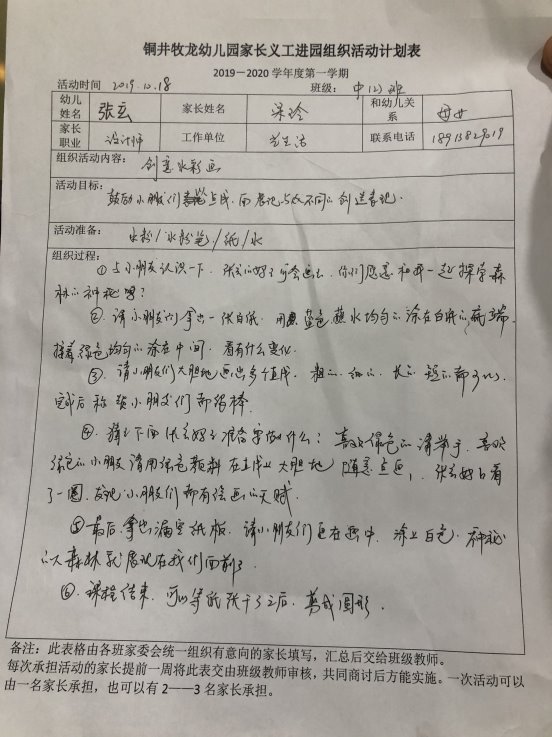 铜井牧龙幼儿园家长义工进园组织活动计划表
2019－2020 学年度第一学期
活动时间 2019.10.18 班级：中(2)班
幼儿姓名 张云 家长姓名 梁玲 和幼儿关系 母女
家长职业 设计师 工作单位 联系电话
组织活动内容：创意水彩画
活动目标：
鼓励小朋友们 点成.
活动准备：水粉/水粉笔/纸/水
组织过程：
①与小朋友认识一下. 你们愿意和我一起探索森
林的神秘吗？
②. 请小朋友们拿出一张白纸. 用蓝色 蘸水均匀的涂在白纸的两端.
接着绿色均匀的涂在中间. 看有什么变化.
③. 请小朋友们大胆地画出多个直线. 粗的. 细的. 长的. 短的都可以.
完成后称赞小朋友们都很棒.
④. 猜猜下面 准备要做什么？喜欢绿色的请举手. 喜欢
绿色的小朋友请用绿色颜料在直线上大胆地随意点画,
了一圈. 发现小朋友们都有绘画的天赋.
⑤最后. 拿出漏空纸板. 请小朋友们 在画中. 涂上白色. 神秘
的大森林就展现在我们面前了.
⑥. 课程结束. 可以等纸张干了之后. 剪成圆形.
备注：此表格由各班家委会统一组织有意向的家长填写，汇总后交给班级教师。
每次承担活动的家长提前一周将此表交由班级教师审核，共同商讨后方能实施。一次活动可以
由一名家长承担，也可以有 2——3 名家长承担。